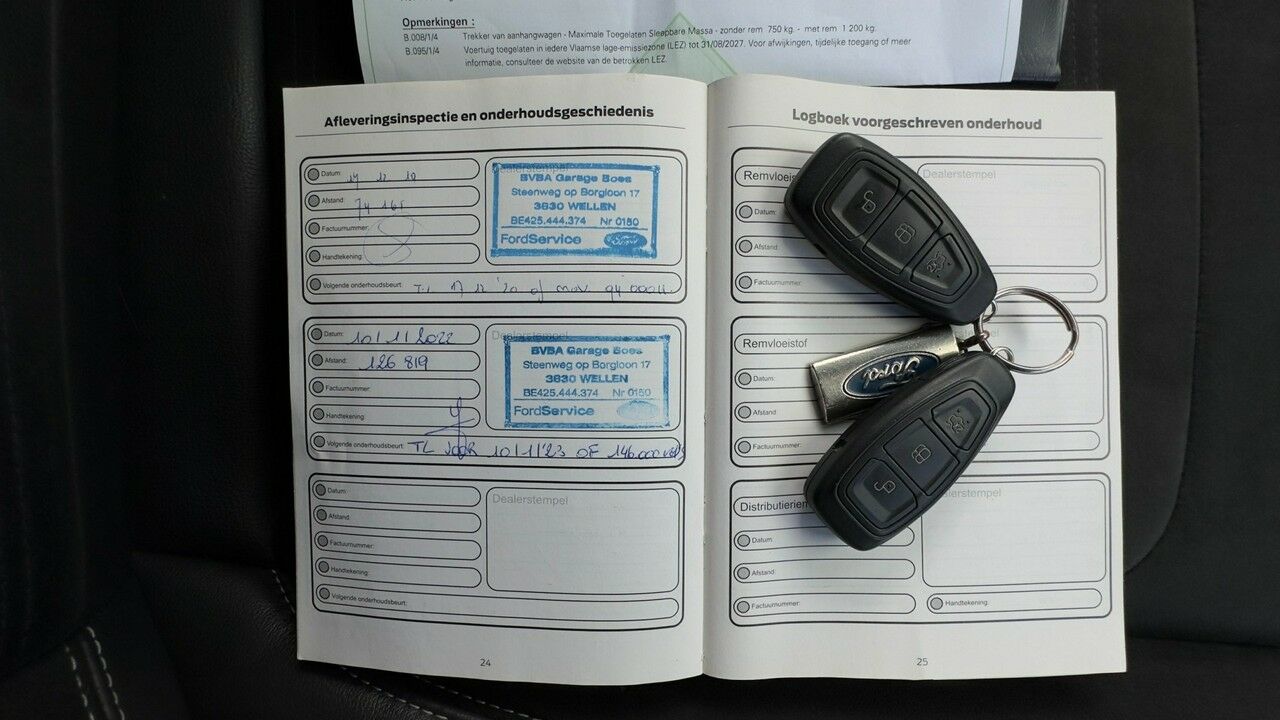 Opmerkingen :
B.008/1/4 Trekker van aanhangwagen - Maximale Toegelaten Sleepbare Massa - zonder rem 750 kg. - met rem 1 200 kg.
B.095/1/4 Voertuig toegelaten in iedere Vlaamse lage-emissiezone (LEZ) tot 31/08/2027. Voor afwijkingen, tijdelijke toegang of meer
informatie, consulteer de website van de betrokken LEZ.
Afleveringsinspectie en onderhoudsgeschiedenis
Datum:
Afstand:
Factuurnummer:
Handtekening:
Volgende onderhoudsbeurt:
Dealerstempel
BVBA Garage Boes
Steenweg op Borgloon 17
3830 WELLEN
BE425.444.374 Nr 0150
FordService Ford
Datum: 10/11/2022
Afstand: 126 819
Factuurnummer:
Handtekening:
Volgende onderhoudsbeurt: TL VOOR 10/11'23 OF 146.000
Dealerstempel
BVBA Garage Boes
Steenweg op Borgloon 17
3830 WELLEN
BE425.444.374 Nr 0150
FordService
Datum:
Afstand:
Factuurnummer:
Handtekening:
Volgende onderhoudsbeurt:
Dealerstempel
24
Logboek voorgeschreven onderhoud
Dealerstempel
Datum:
Afstand
Factuurnummer:
Remvloeistof
Datum:
Afstand
Factuurnummer:
Ford
Datum:
Afstand:
Factuurnummer:
Handtekening:
25